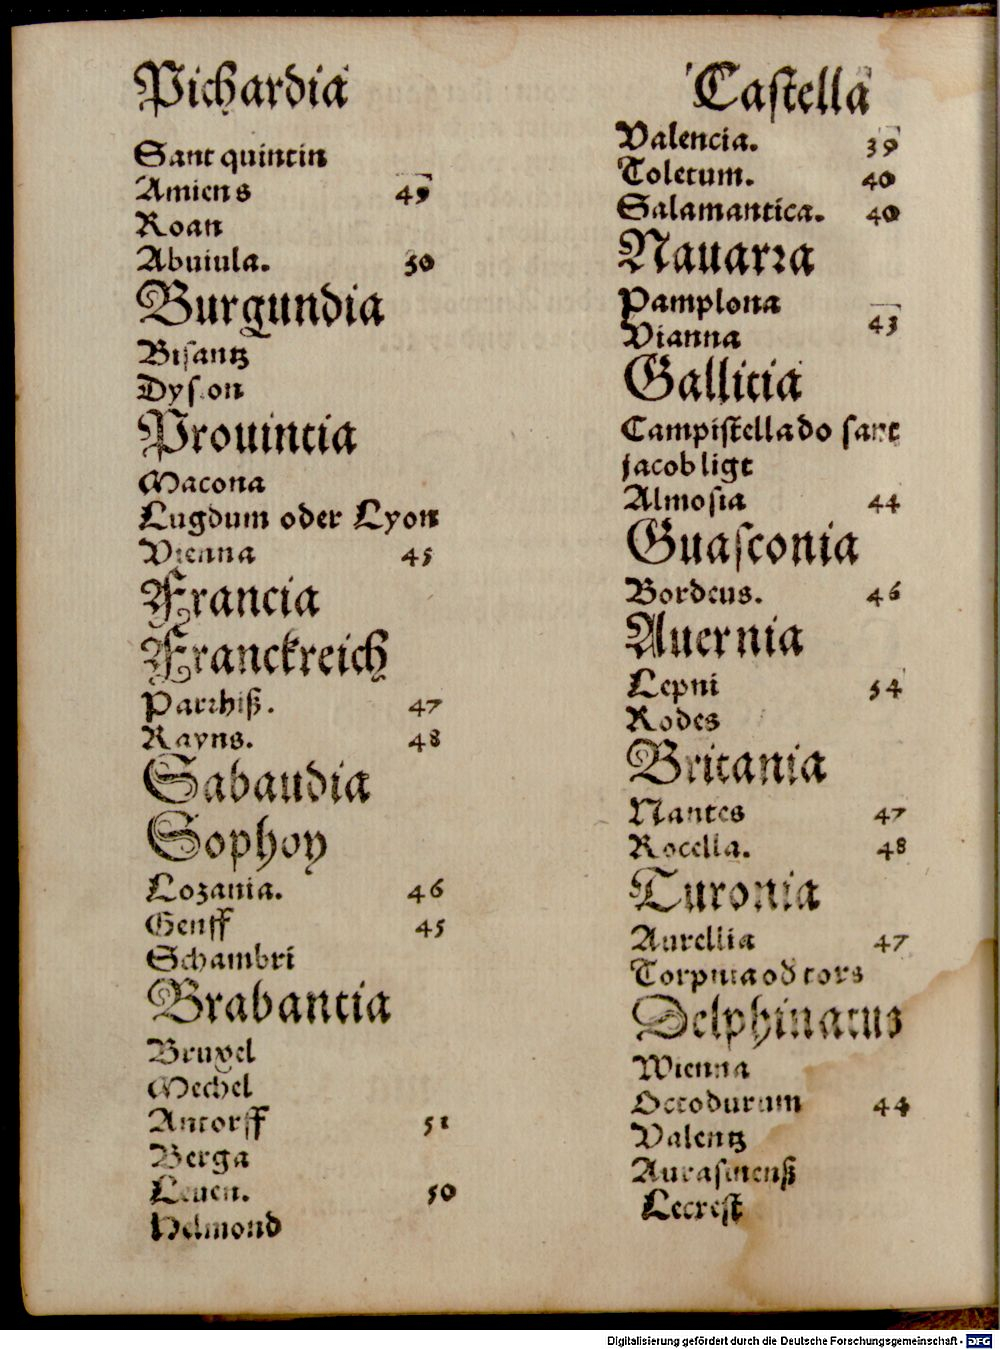 Pichardia
Sant quintin
Amiens 49
Roan
Abuiula. 50
Burgundia
Bisantz
Dyson
Prouintia
Macona
Lugdum oder Lyon
Vienna 45
Francia
Franckreich
Parrhiß. 47
Rayns. 48
Sabaudia
Sophoy
Lozania. 46
Genff 45
Schambri
Brabantia
Bruxel
Mechel
Antorff 51
Berga
Leuen. 50
Helmond
Castella
Valencia. 39
Toletum. 40
Salamantica. 40
Nauarra
Pamplona
Vianna 43
Gallicia
Campistella do sant
jacob ligt
Almosia 44
Guasconia
Bordeus. 46
Auernia
Lepni 54
Rodes
Britania
Nantes 47
Rocella. 48
Turonia
Aurellia 47
Torpnia od tors
Delphinatus
Wienna
Octodurum 44
Valentz
Aurasinenß
Lecrest
Digitalisierung gefördert durch die Deutsche Forschungsgemeinschaft - DFG